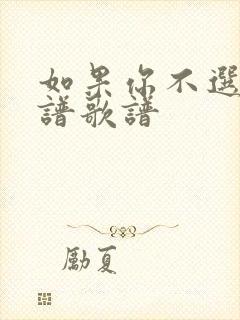 如果你不選
譜歌譜
勵夏